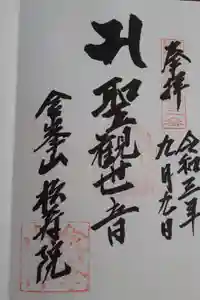 奉拝
令和三年
九月九日
聖觀世音
金峯山 院